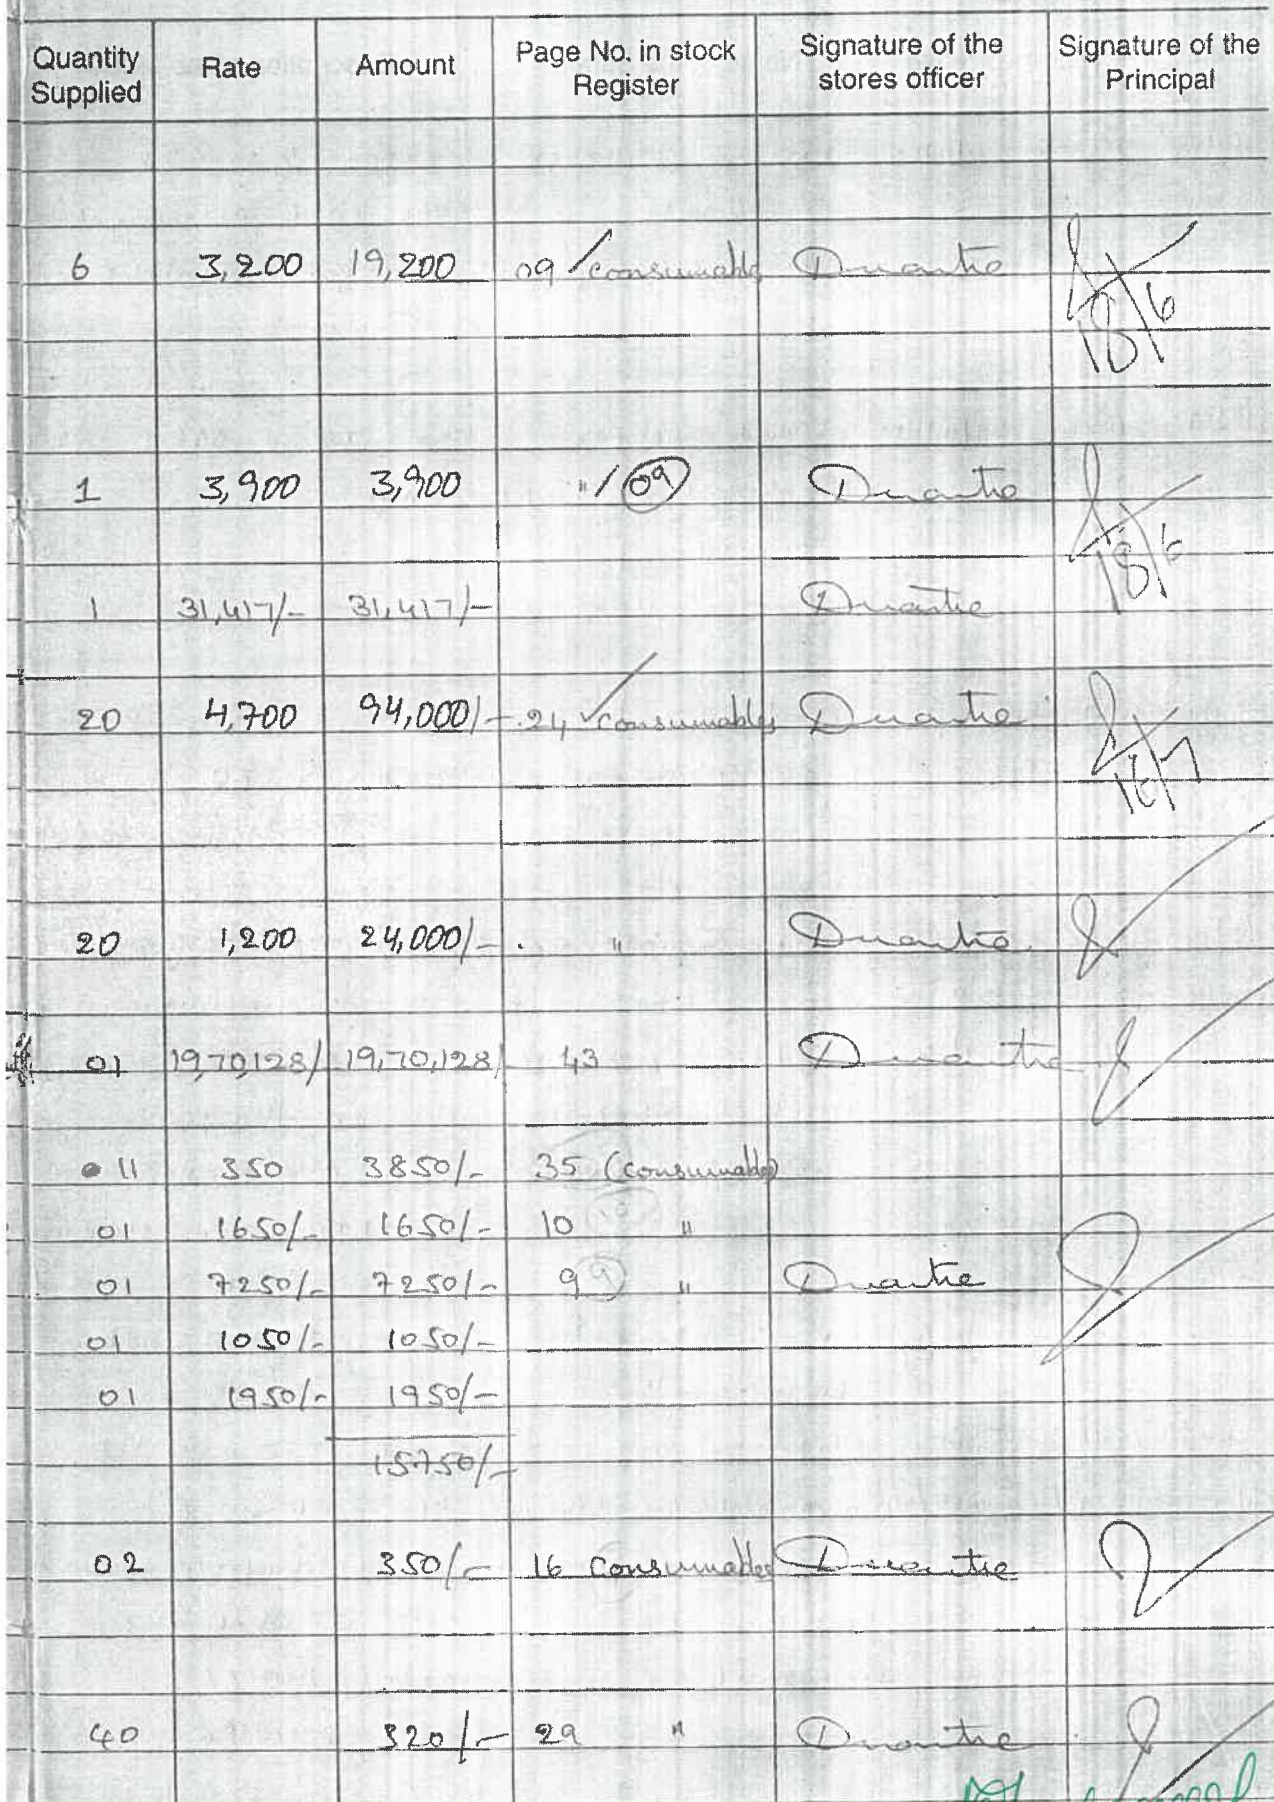 Quantity Supplied Rate Amount Page No. in stock Register Signature of the stores officer Signature of the Principal
6 3,200 19,200 09 / consumable
18/6
1 3,900 3,900 " / 09
18/6
1 31,417/- 31,417/-
20 4,700 94,000/- 24 consumables
16/7
20 1,200 24,000/- "
01 19,70,128/ 19,70,128/ 43
11 350 3850/- 35 (consumable)
01 1650/- 1650/- 10 "
01 7250/- 7250/- 9 9 "
01 1050/- 1050/-
01 1950/- 1950/-
15750/-
02 350/- 16 Consumables
40 320/- 29 "